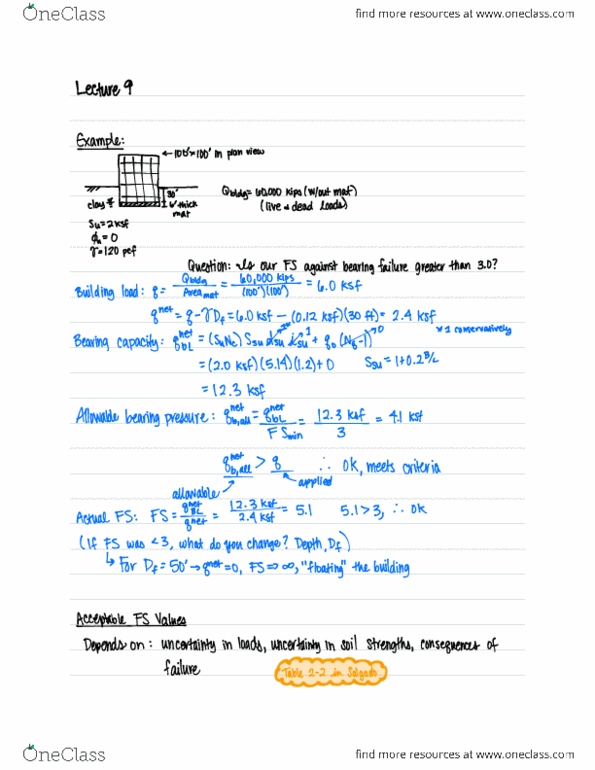 OneClass
find more resources at www.oneclass.com
Lecture 9
Example:
← 100'×100' in plan view
30'
clay
6' thick
mat
Q bldg = 60,000 kips (w/out mat)
(live & dead loads)
Su = 2 ksf
ϕ = 0
γ = 120 pcf
Question: Is our FS against bearing failure greater than 3.0?
Building load: q = Qbldg / Area mat = 60,000 kips / (100')(100') = 6.0 ksf
q^net = q - γ Df = 6.0 ksf - (0.12 ksf)(30 ft) = 2.4 ksf
Bearing capacity: q_bL^net = (Su Nc) Ssu dsu isu + q0 (Nq - 1) →0 *1 conservatively
= (2.0 ksf)(5.14)(1.2) + 0 Ssu = 1 + 0.2 B/L
= 12.3 ksf
Allowable bearing pressure: q_b,all^net = q_bL^net / FS min = 12.3 ksf / 3 = 4.1 ksf
q_b,all^net > q ∴ OK, meets criteria
allowable applied
Actual FS: FS = q_bL^net / q^net = 12.3 ksf / 2.4 ksf = 5.1 5.1 > 3, ∴ OK
(If FS was < 3, what do you change? Depth, Df)
↳ For Df = 50' → q^net = 0, FS ⇒ ∞, "floating" the building
Acceptable FS Values
Depends on: uncertainty in loads, uncertainty in soil strengths, consequences of
failure
Table 2-2 in Salgado
OneClass
find more resources at www.oneclass.com